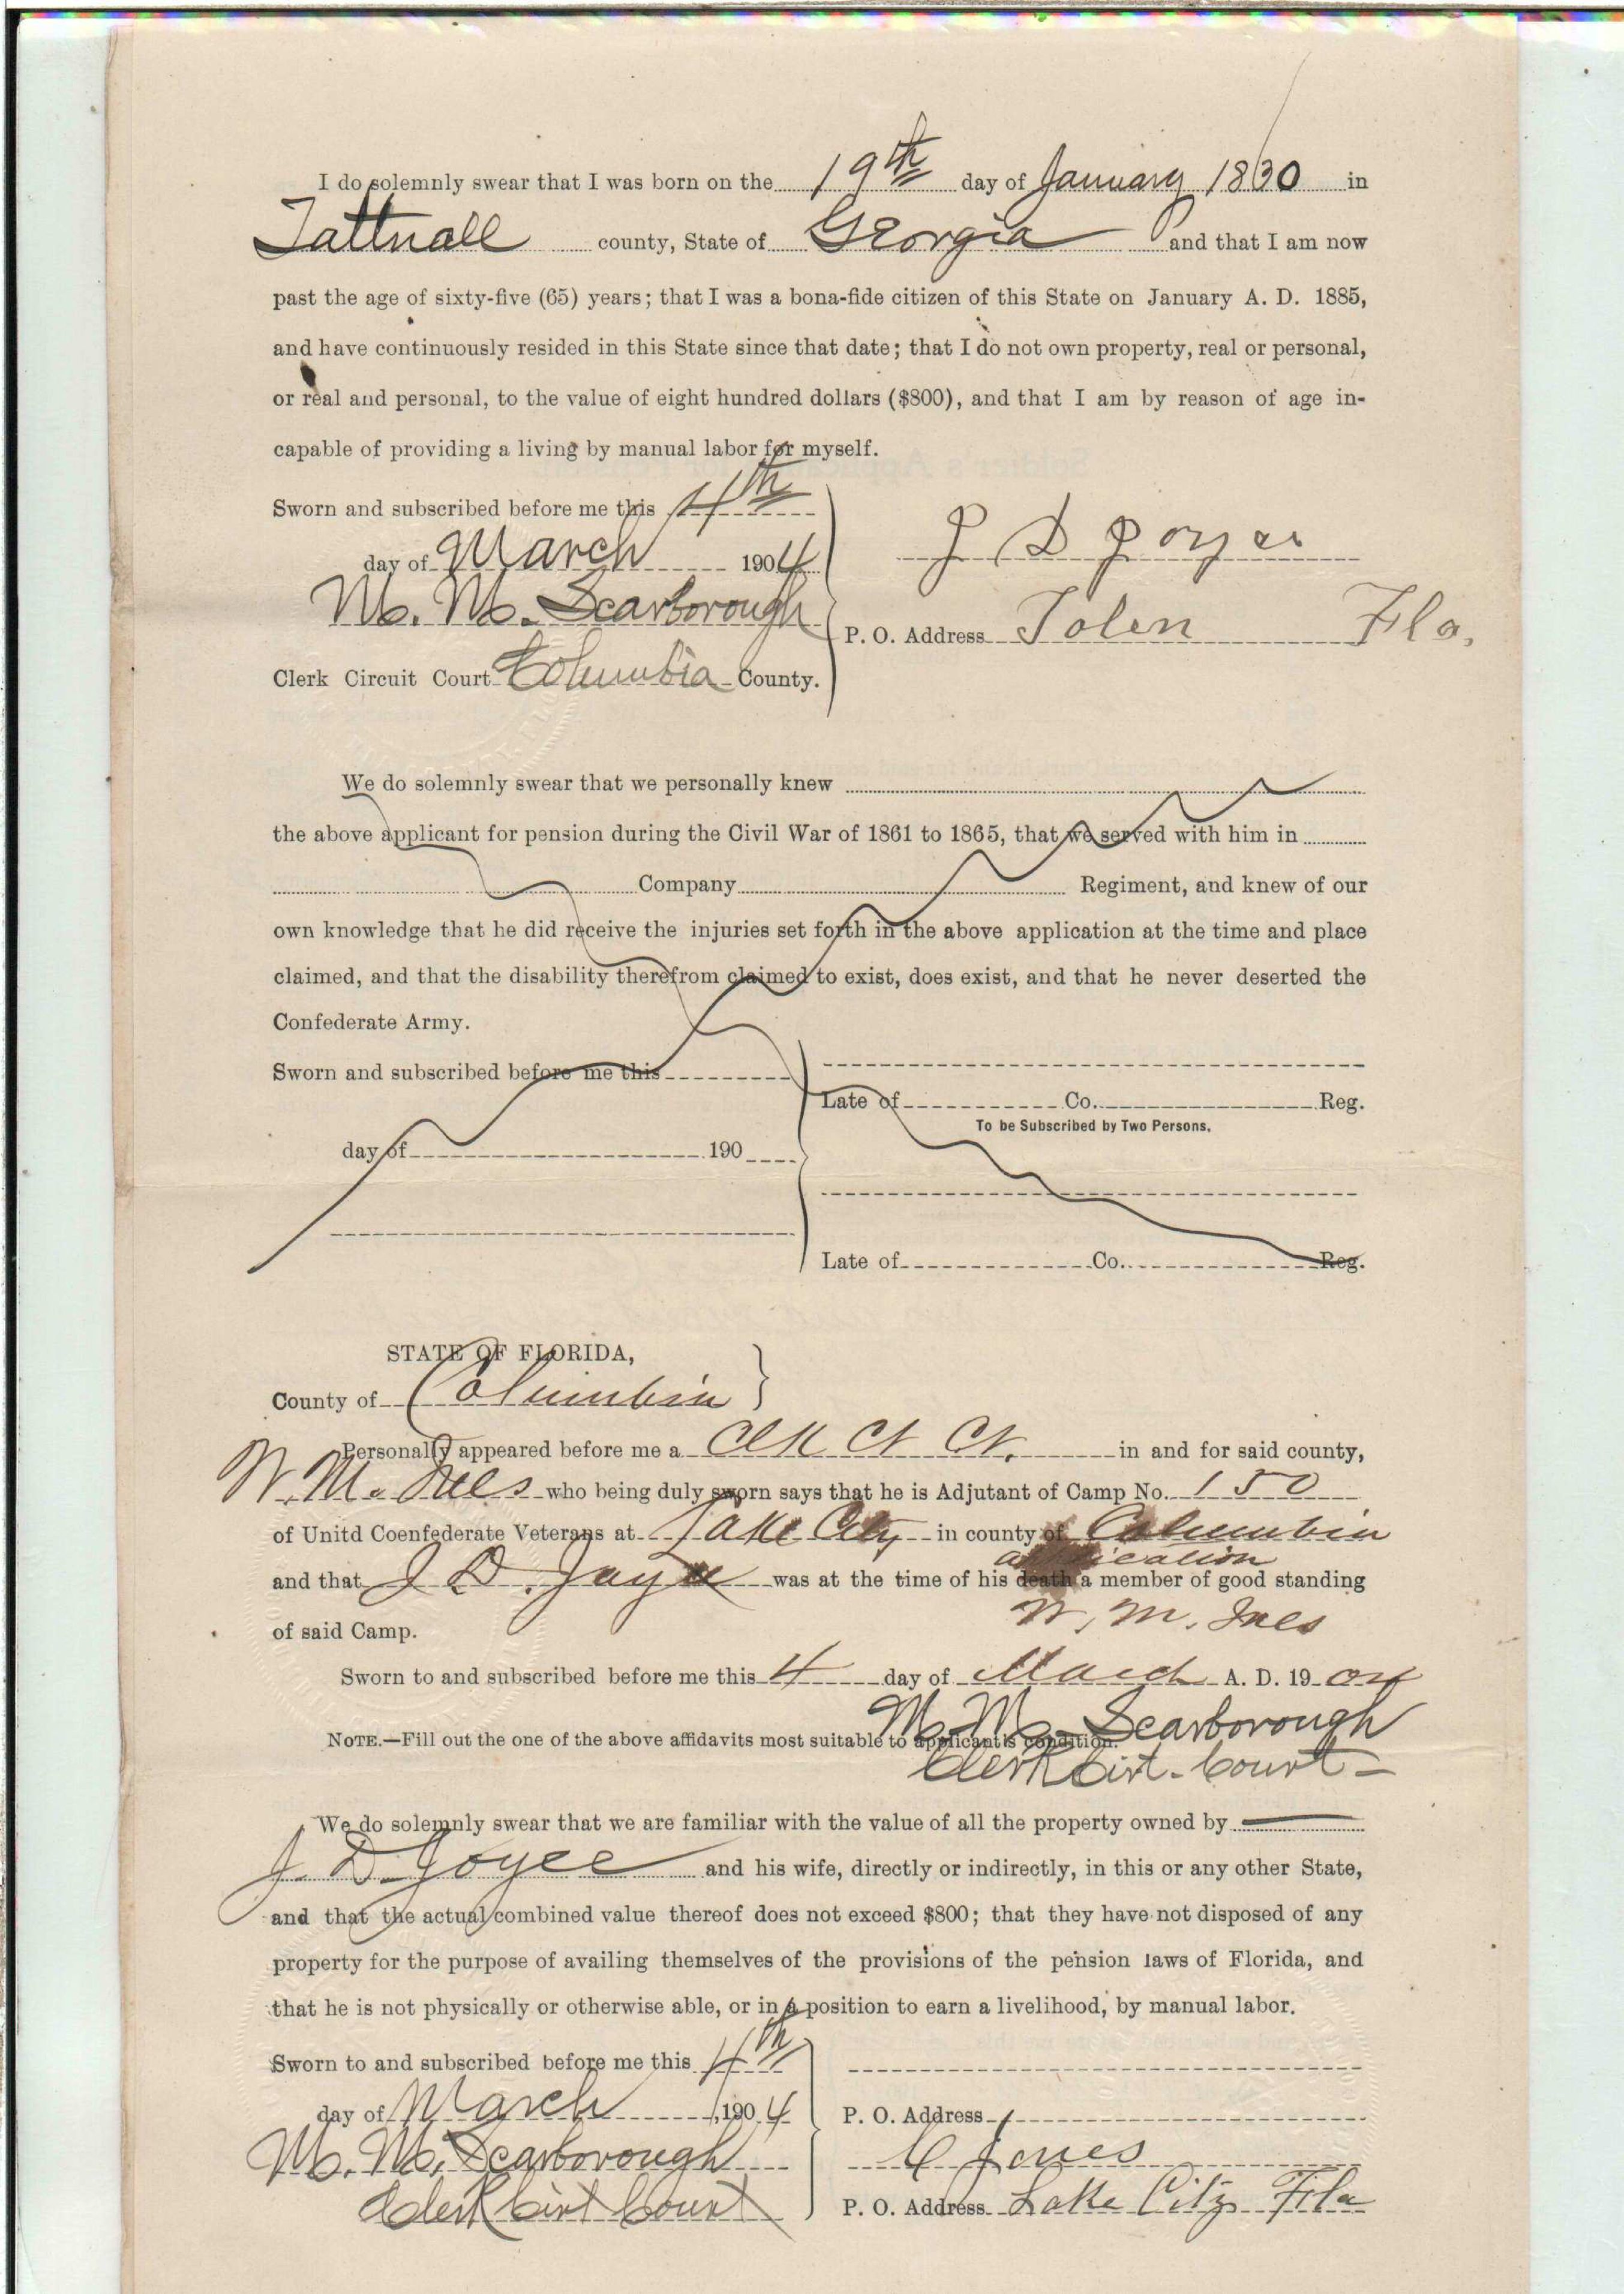 I do solemnly swear that I was born on the 19th day of January 1830 in
Tattnall county, State of Georgia and that I am now
past the age of sixty-five (65) years; that I was a bona-fide citizen of this State on January A. D. 1885,
and have continuously resided in this State since that date; that I do not own property, real or personal,
or real and personal, to the value of eight hundred dollars ($800), and that I am by reason of age in-
capable of providing a living by manual labor for myself.
Sworn and subscribed before me this 4th
day of March 1904
M. M. Scarborough
Clerk Circuit Court Columbia County.
J D Joyce
P. O. Address Tolen Fla.
We do solemnly swear that we personally knew
the above applicant for pension during the Civil War of 1861 to 1865, that we served with him in
Company Regiment, and knew of our
own knowledge that he did receive the injuries set forth in the above application at the time and place
claimed, and that the disability therefrom claimed to exist, does exist, and that he never deserted the
Confederate Army.
Sworn and subscribed before me this
day of 190
Late of Co. Reg.
To be Subscribed by Two Persons.
Late of Co. Reg.
STATE OF FLORIDA,
County of Columbia
Personally appeared before me a Clk Ct Ct. in and for said county,
W. M. Ives who being duly sworn says that he is Adjutant of Camp No. 150
of Unitd Coenfederate Veterans at Lake City in county of Columbia
application
and that J D. Joyce was at the time of his death a member of good standing
of said Camp.
W. M. Ives
Sworn to and subscribed before me this 4 day of March A. D. 1904
M. M. Scarborough
NOTE.—Fill out the one of the above affidavits most suitable to applicant's condition.
Clerk Cirt. Court
We do solemnly swear that we are familiar with the value of all the property owned by
J. D. Joyce and his wife, directly or indirectly, in this or any other State,
and that the actual combined value thereof does not exceed $800; that they have not disposed of any
property for the purpose of availing themselves of the provisions of the pension laws of Florida, and
that he is not physically or otherwise able, or in a position to earn a livelihood, by manual labor.
Sworn to and subscribed before me this 4th
day of March, 1904
M. M. Scarborough
Clerk Cirt Court
P. O. Address
C Jones
P. O. Address Lake City Fla